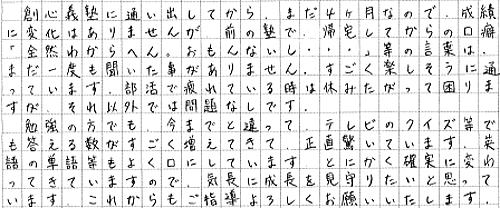 創心義塾に通い出してから、まだ4ヶ月なので、成績
に変化はありませんが、前の塾で、帰宅してからの口癖
「全然わからへん。おもんないし・・・」等の言葉は、
まだ一度も聞いた事がありません。すごく楽しそうに通
っています。部活で疲れている時は休みたがって困りま
すが、それ以外では問題なしです。
勉強の方でも、今までと違って、テレビのクイズ等で
も答える数がすごく増えてきて、正直驚いています。英
語の単語等もよく口にしています。とにかく確実に変わ
ってきていますので、気長に成長を見守りたいと思って
います。これからもご指導よろしくお願いいたします。